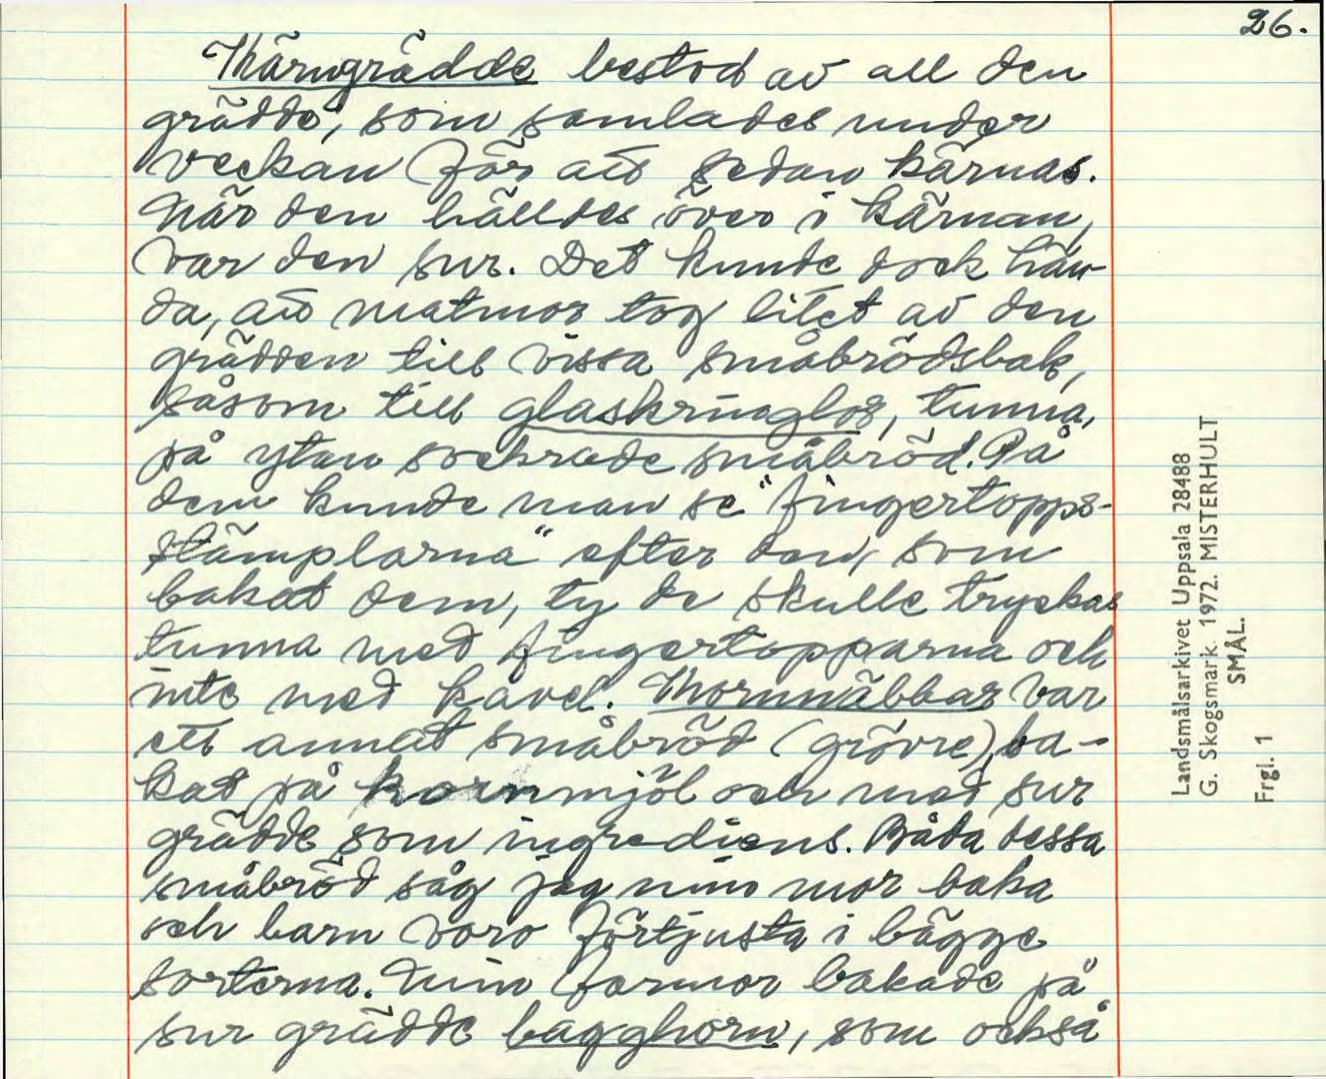 26.
Kärngrädde bestod av all den
grädde, som samlades under
veckan för att sedan kärnas.
När den hälldes över i kärnan,
var den sur. Det kunde dock hän-
da, att matmor tog litet av den
grädden till vissa småbrödsbak,
såsom till glaskringlor, tunna,
på ytan sockrade småbröd. På
dem kunde man se "fingertopps-
stämplarna" efter den, som
bakat dem, ty de skulle tryckas
tunna med fingertopparna och
inte med kavel. Kornnäbbar var
ett annat småbröd (grövre), ba-
kat på kornmjöl och med sur
grädde som ingrediens. Båda dessa
småbröd såg jag min mor baka
och barn voro förtjusta i bägge
sorterna. Min farmor bakade på
sur grädde bagghorn, som också
Landsmålsarkivet Uppsala 28488
G. Skogsmark. 1972. MISTERHULT
SMÅL.
Frgl. 1